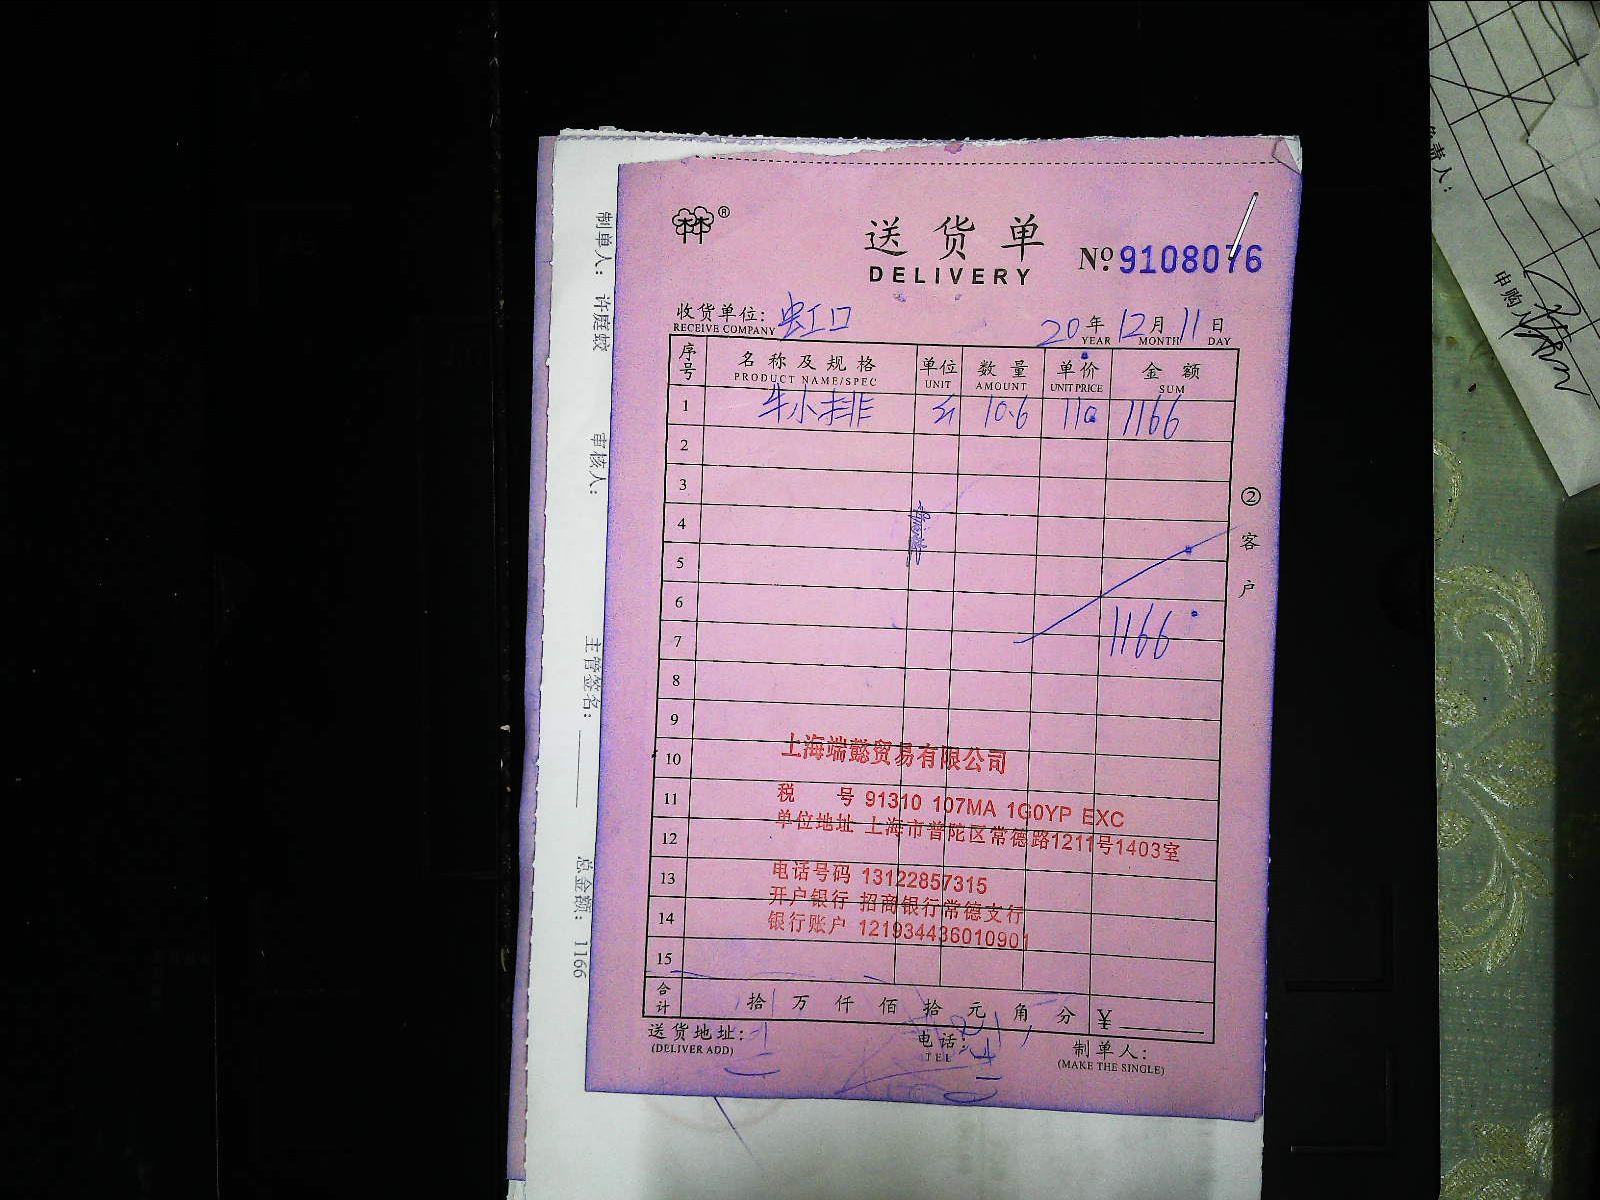 送货单
DELIVERY
No. 9108076
收货单位: 虹口
RECEIVE COMPANY
20年 12月 11日
YEAR MONTH DAY
序号 名称及规格 单位 数量 单价 金额
PRODUCT NAME/SPEC UNIT AMOUNT UNIT PRICE SUM
1 牛小排 10.6 110 1166
2
3
4
5
6
1166
7
8
9
10
上海端懿贸易有限公司
11
税 号 91310 107MA 1G0YP EXC
单位地址 上海市普陀区常德路1211号1403室
12
13
电话号码 13122857315
开户银行 招商银行常德支行
14
银行账户 121934436010901
15
合计 拾 万 仟 佰 拾 元 角 分 ¥
送货地址: 电话: 制单人:
(DELIVER ADD) TEL (MAKE THE SINGLE)
② 客户
制单人: 许庭蛟 审核人: 主管签名: 总金额: 1166
责人:
申购人